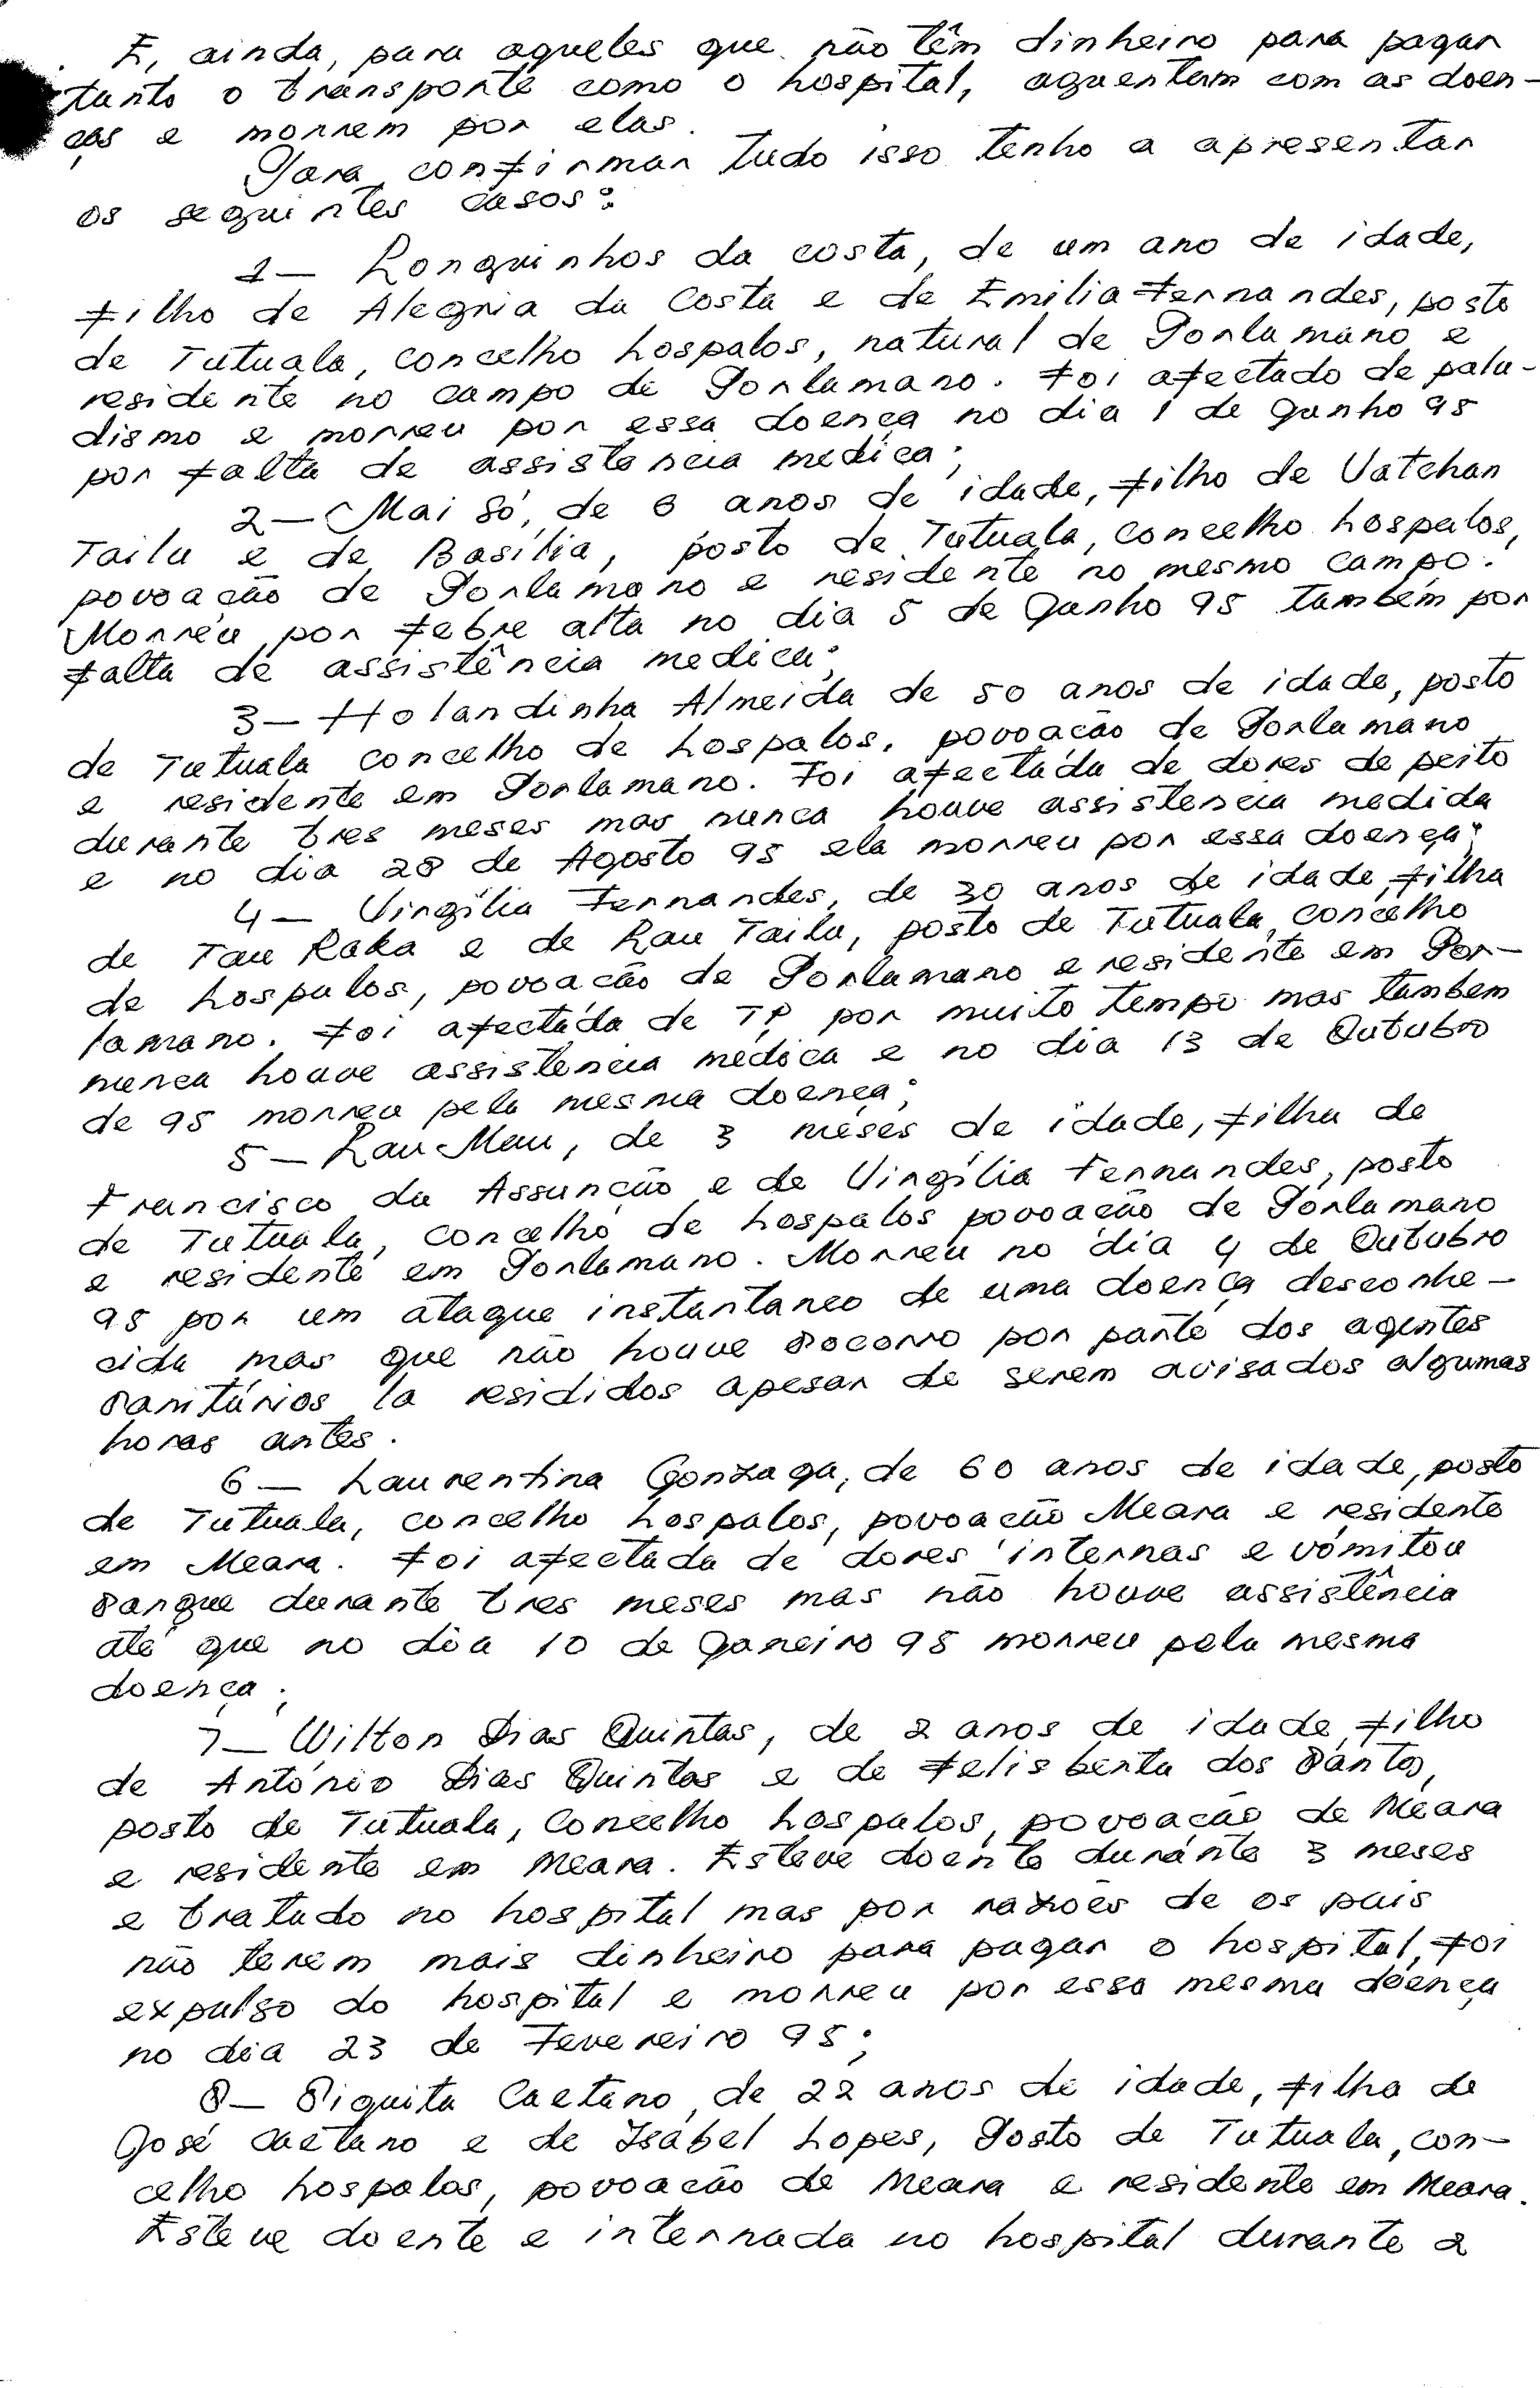 E, ainda, para aqueles que não têm dinheiro para pagar
tanto o transporte como o hospital, aguentam com as doen-
ças e morrem por elas.
Para confirmar tudo isso tenho a apresentar
os seguintes casos:
1— Longuinhos da costa, de um ano de idade,
filho de Alegria da Costa e de Emilia Fernandes, posto
de Tutuala, concelho Lospalos, natural de Porlamano e
residente no campo de Porlamano. Foi afectado de palu-
dismo e morreu por essa doença no dia 1 de Junho 95
por falta de assistencia medica;
2— Mai Só, de 6 anos de idade, filho de Vatchan
Tailu e de Basília, posto de Tutuala, concelho Lospalos,
povoação de Porlamano e residente no mesmo campo.
Morreu por febre alta no dia 5 de Junho 95 também por
falta de assistência medica;
3— Holandinha Almeida de 50 anos de idade, posto
de Tutuala concelho de Lospalos, povoacão de Porlamano
e residente em Porlamano. Foi afectada de dores de peito
durante tres meses mas nunca houve assistencia medida
e no dia 28 de Agosto 95 ela morreu por essa doença;
4— Virgília Fernandes, de 30 anos de idade, filha
de Tau Raka e de Lau Tailu, posto de Tutuala, concelho
de Lospalos, povoacão de Porlamano e residente em Por-
lamano. Foi afectada de TP por muito tempo mas tambem
nunca houve assistencia médica e no dia 13 de Outubro
de 95 morreu pela mesma doença;
5— Lau Mau, de 3 meses de idade, filha de
Francisco da Assunção e de Virgília Fernandes, posto
de Tutuala, concelho de Lospalos povoacão de Porlamano
e residente em Porlamano. Morreu no dia 4 de Outubro
95 por um ataque instantaneo de uma doença desconhe-
cida mas que não houve socorro por parte dos agentes
sanitários la residos apesar de serem avisados algumas
horas antes.
6— Laurentina Gonzaga, de 60 anos de idade, posto
de Tutuala, concelho Lospalos, povoacão Meara e residente
em Meara. Foi afectada de dores internas e vómitou
sangue durante tres meses mas não houve assistência
até que no dia 10 de Janeiro 95 morreu pela mesma
doença;
7— Wilton Dias Quintas, de 2 anos de idade, filho
de António Dias Quintas e de Felisberta dos Santos,
posto de Tutuala, Concelho Lospalos, povoação de Meara
e residente em Meara. Esteve doente durante 3 meses
e tratado no hospital mas por razões de os pais
não terem mais dinheiro para pagar o hospital, foi
expulso do hospital e morreu por essa mesma doença
no dia 23 de Fevereiro 95;
8— Siquita Caetano, de 22 anos de idade, filha de
José Caetano e de Isabel Lopes, Posto de Tutuala, con-
celho Lospalos, povoacão de Meara e residente em Meara.
Esteve doente e internada no hospital durante 2